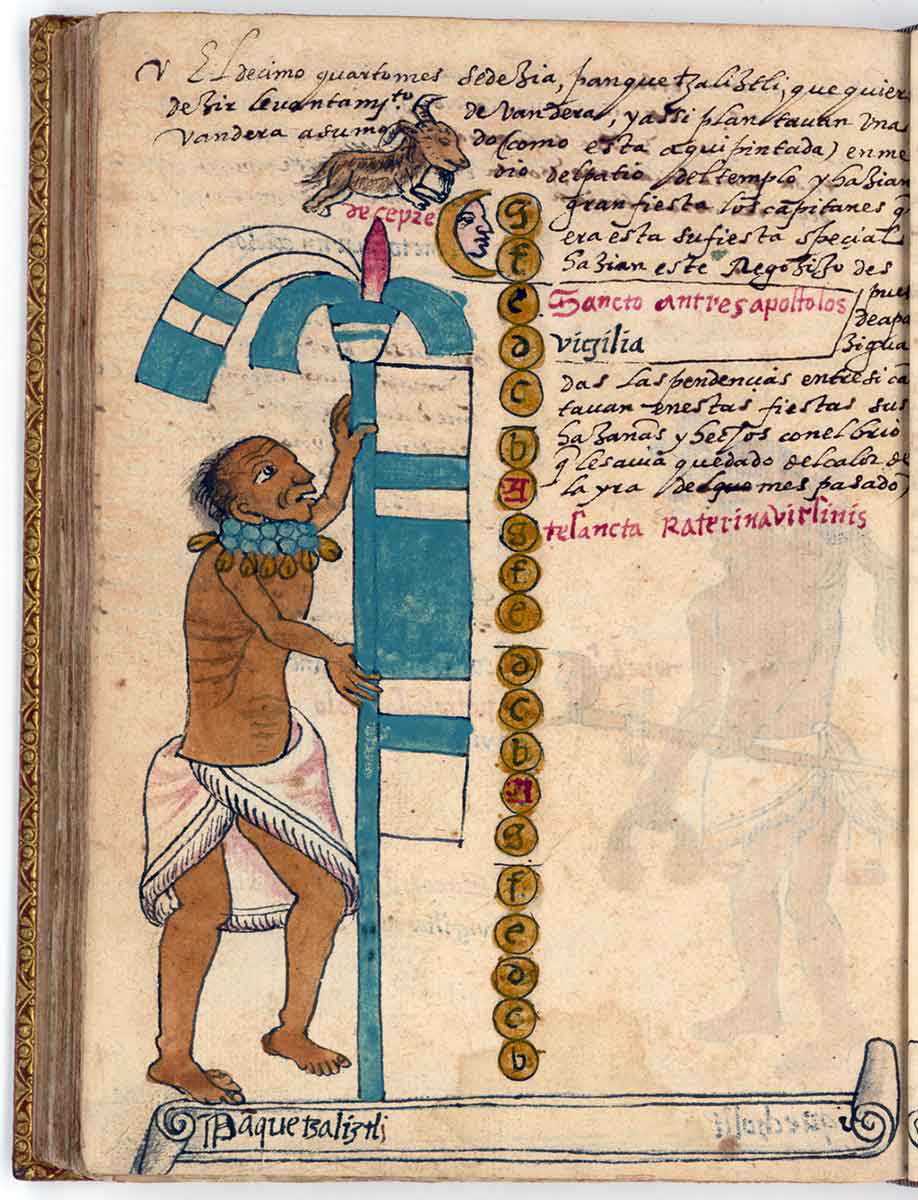 v El decimo quarto mes se dezia, panquetzaliztli, que quier
dezir levantamj.to de vandera, y assi plantavan una
vandera asumo do (como esta aqui pintada) en me
dio del patio del templo y hazian
gran fiesta los capitanes q
era esta su fiesta special
hazian este Regozijo des
pues
de apa
zigua
das las pendencias entresi ca
tavan en estas fiestas sus
hazanas y hechos con el brio
q les avia quedado del calor de
la yra del que mes pasado
de cepre
g
f
e Sancto antres apostolos
d vigilia
c
b
A
g te sancta Katerina virginis
f
e
d
c
b
A
g
f
e
d
c
b
Pãquetzaliztli